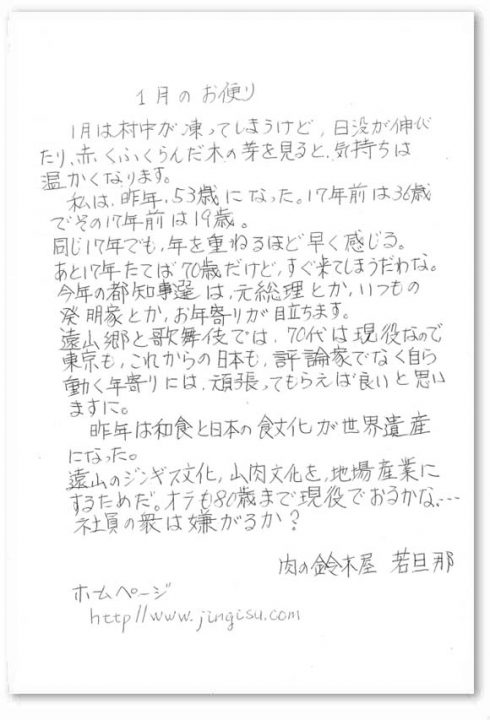 1月のお便り
1月は村中が凍ってしまうけど、日没が伸び
たり、赤くふくらんだ木の芽を見ると、気持ちは
温かくなります。
私は、昨年、53歳になった。17年前は36歳
でその17年前は19歳。
同じ17年でも、年を重ねるほど早く感じる。
あと17年たてば70歳だけど、すぐ来てしまうだわな。
今年の都知事選は、元総理とか、いつもの
発明家とか、お年寄りが目立ちます。
遠山郷と歌舞伎では、70代は現役なので
東京も、これからの日本も、評論家でなく自ら
動く年寄りには、頑張ってもらえば良いと思い
ますに。
昨年は和食と日本の食文化が世界遺産
になった。
遠山のジンギス文化、山肉文化を、地場産業に
するためだ。オラも80歳まで現役でおるかな、…
社員の衆は嫌がるか？
肉の鈴木屋 若旦那
ホームページ
http//www.jingisu.com